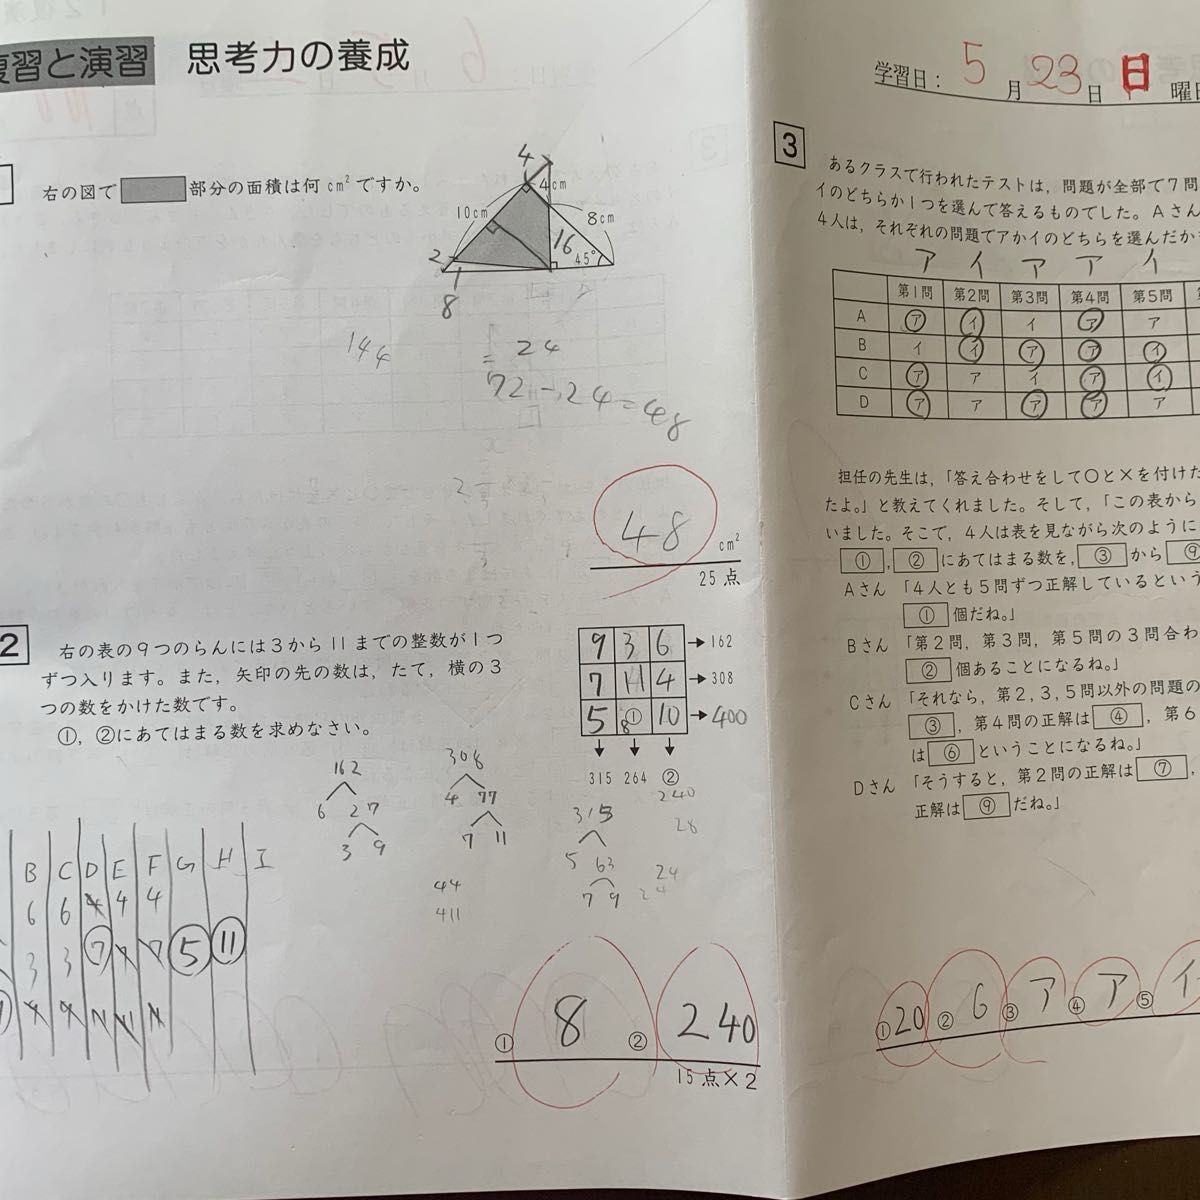 復習と演習 思考力の養成
右の図で 部分の面積は何cm²ですか。
4
4cm
10cm
8cm
16
45°
2
1
8
144
= 24
72-24=48
48 cm²
25点
2
右の表の9つのらんには3から11までの整数が1つ
ずつ入ります。また，矢印の先の数は，たて，横の3
つの数をかけた数です。
①，②にあてはまる数を求めなさい。
9 3 6 → 162
7 11 4 → 308
5 8 ① 10 → 400
315 264 ②
240
28
24
24
162
6 27
3 9
308
4 77
7 11
44
411
315
5 63
7 9
B C D E F G H I
6 6 4 4 4
3 3 7 7 7 5 11
① 8 ② 240
15点×2
学習日：5月23日 日曜日
3
あるクラスで行われたテストは，問題が全部で7問
イのどちらか1つを選んで答えるものでした。Aさん
4人は，それぞれの問題でアかイのどちらを選んだか
ア イ ア ア イ
第1問 第2問 第3問 第4問 第5問
A ア イ イ ア ア
B イ イ ア ア イ
C ア ア イ ア イ
D ア ア ア ア ア
担任の先生は，「答え合わせをして○と×を付けた
たよ。」と教えてくれました。そして，「この表から
いました。そこで，4人は表を見ながら次のように
①，②にあてはまる数を，③から⑨
Aさん 「4人とも5問ずつ正解しているという
①個だね。」
Bさん 「第2問，第3問，第5問の3問合わ
②個あることになるね。」
Cさん 「それなら，第2，3，5問以外の問題の
③，第4問の正解は④，第6
は⑥ということになるね。」
Dさん 「そうすると，第2問の正解は⑦，
正解は⑨だね。」
① 20 ② 6 ③ ア ④ ア ⑤ イ